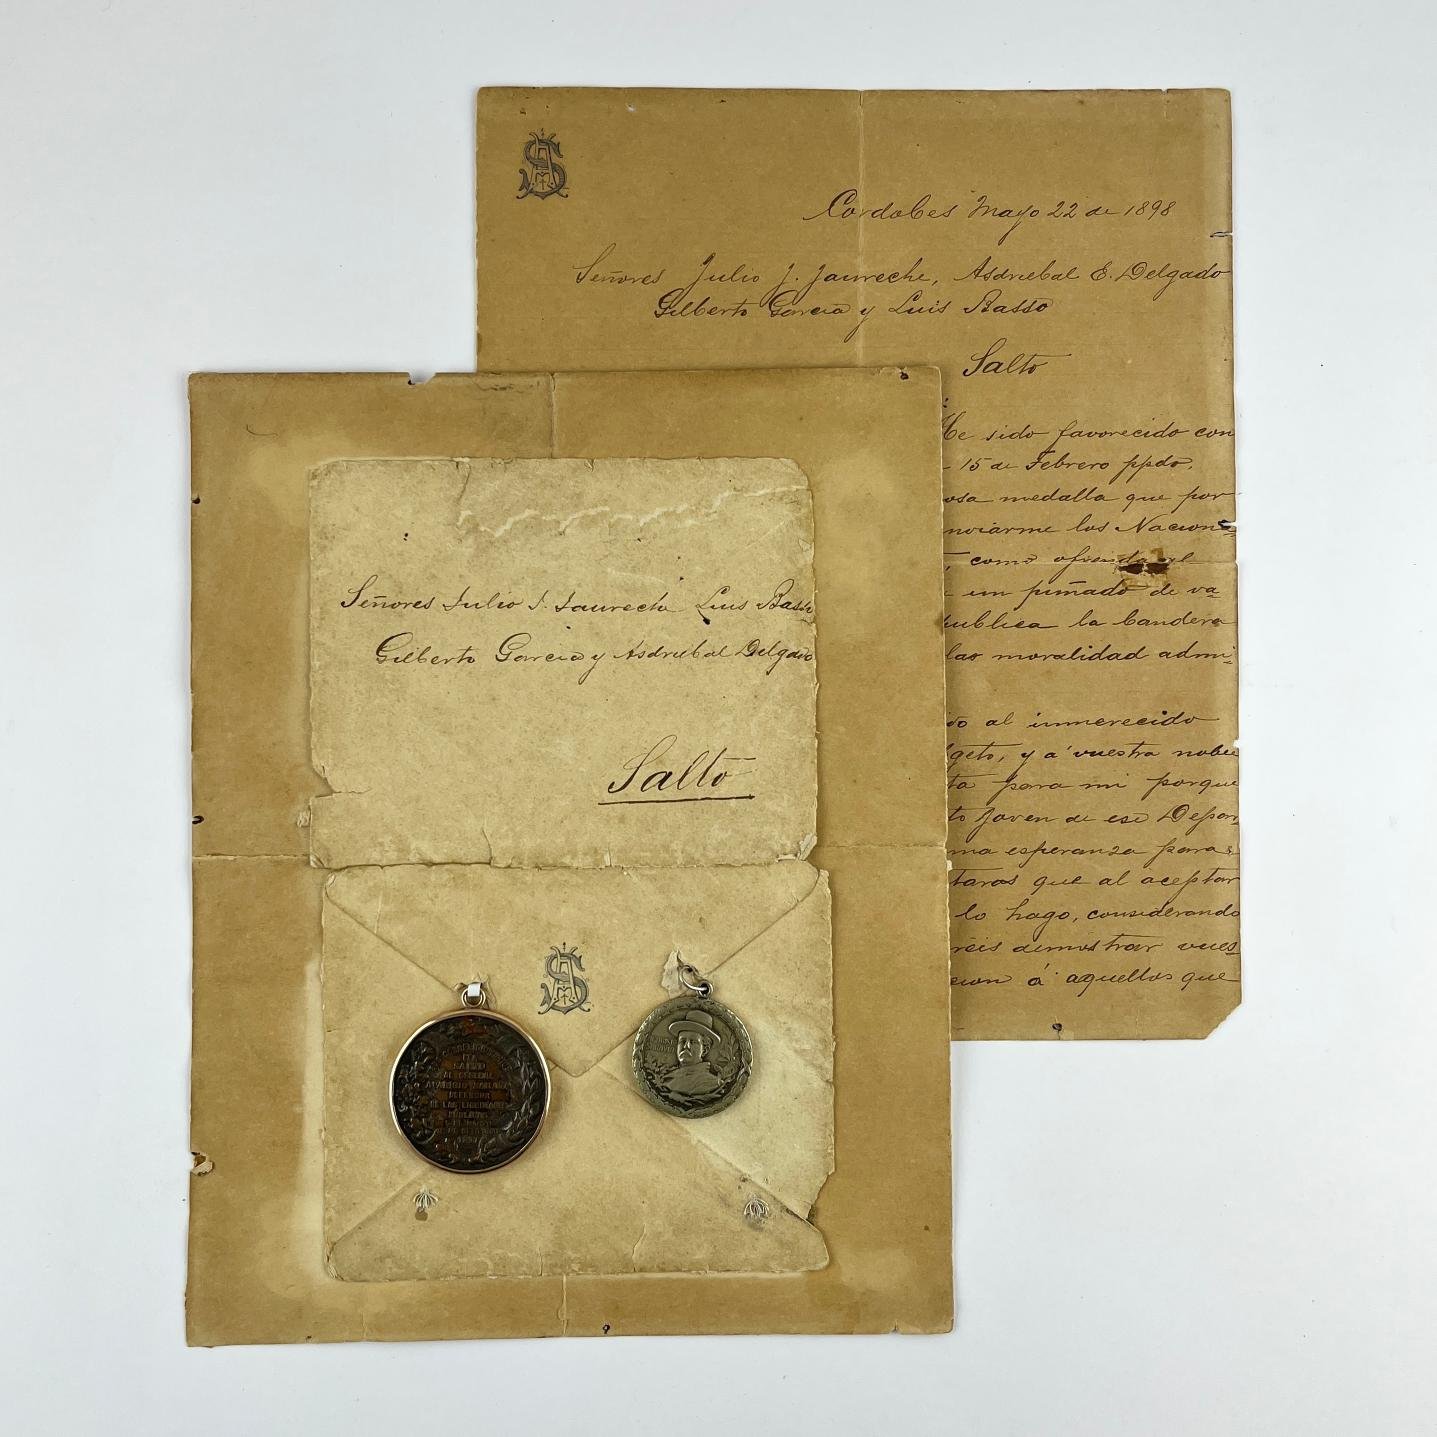 AS
Cordobes Mayo 22 de 1898
Señores Julio J. Jaureche, Asdruebal E. Delgado
Gilberto Garcia y Luis Basso
Salto
He sido favorecido con
15 de Febrero ppdo.
osa medalla que por
nviarme los Nacion=
, como ofrenda al
un puñado de va
publica la bandera
las moralidad admi=
do al inmerecido
geto, y á vuestra noble
ta para mi porque
to joven de ese Depar=
ma esperanza para
taros que al aceptar
lo hago, considerando
reis demostrar vues=
cion á aquellos que
Señores Julio J. Jaureche Luis Basso
Gilberto Garcia y Asdruebal Delgado
Salto
AS
AL GENERAL
APARICIO SARAVIA
DEFENSOR
DE LAS LIBERTADES
PUBLICAS
1897